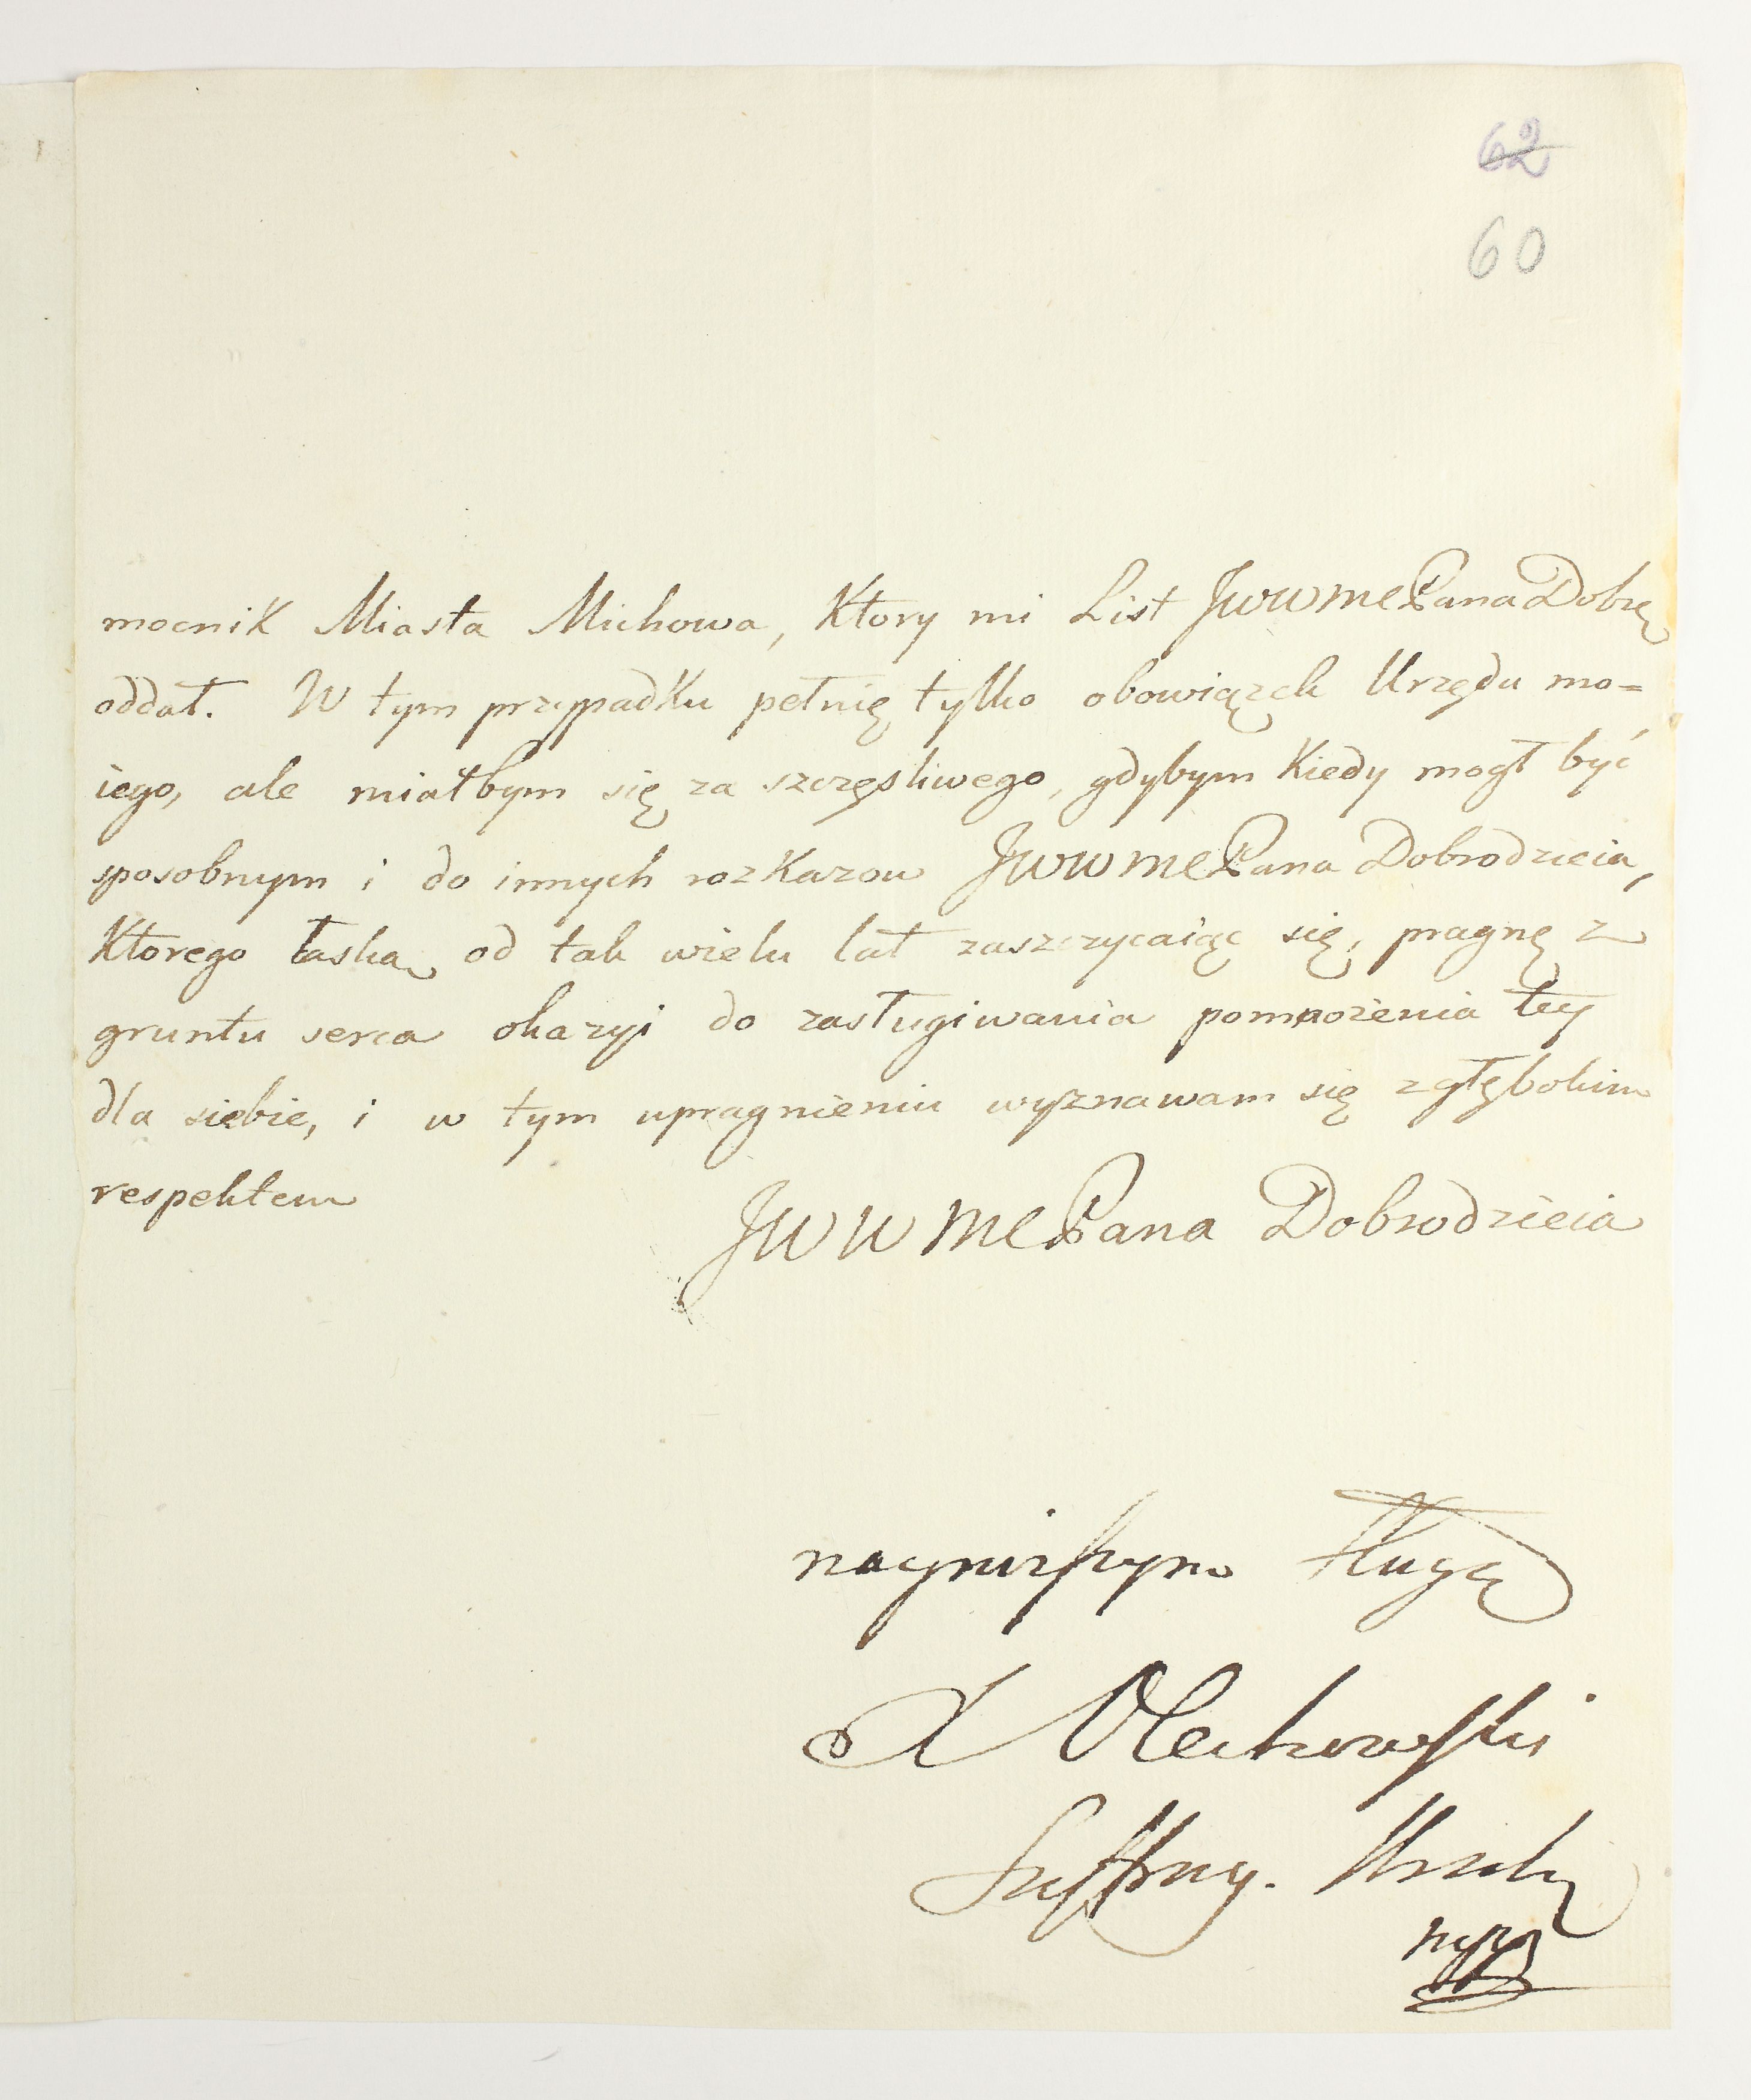 62
60
mocnik Miasta Michowa, Ktory mi List JWWMCPana Dobrą
oddał. W tym przypadku pełnię tylko obowiązek Urzędu mo=
iego, ale miałbym się za szczęśliwego, gdybym Kiedy mogł być
sposobnym i do innych rozKazow JWWMCPana Dobrodzieia,
Ktorego łaską od tak wielu lat zaszczycaiąc się, pragnę z
gruntu serca okazyi do zasługiwania pomnożenia tey
dla siebie, i w tym upragnieniu wyznawam się z głębokim
respektem
JWWMCPana Dobrodzieia
nayniższym sługą
X Olechowski
Suffrag.
mp